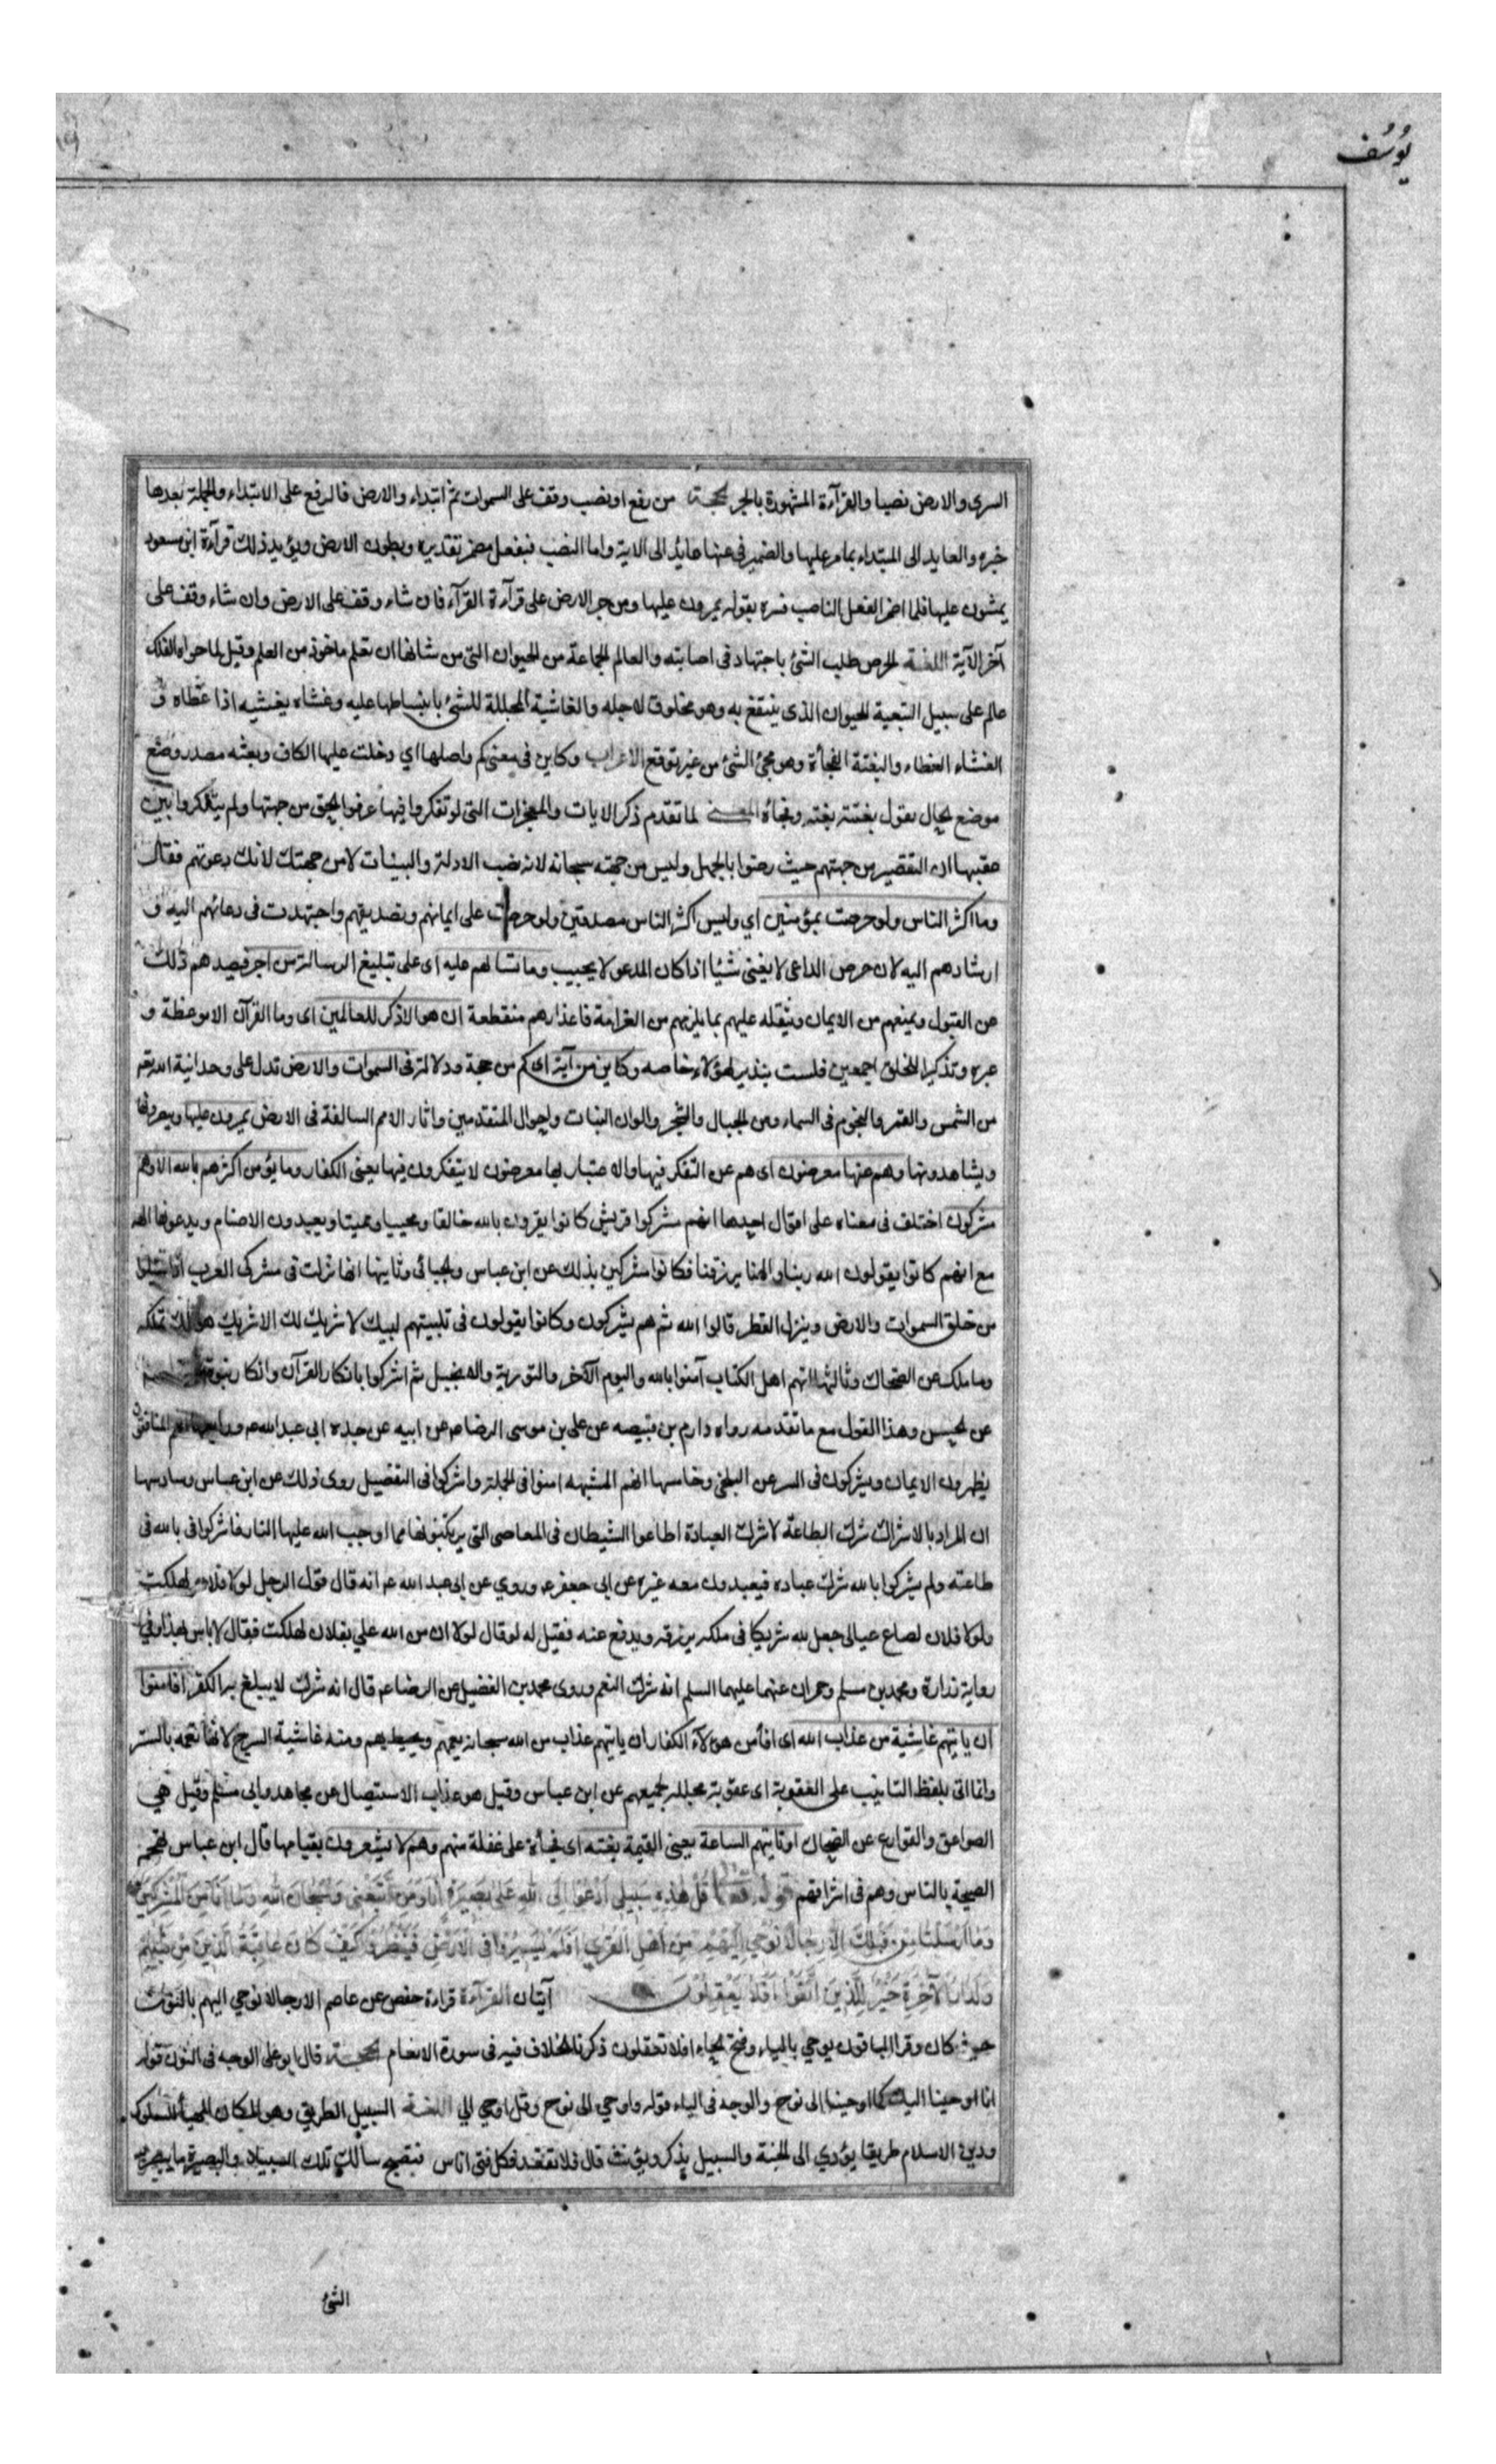 يُوسُف
السدي والارض نصبا والقرآءة المشهورة بالجر الحجة من رفع او نصب وقف على السموات ثم ابتداء والارض فالرفع على الابتداء والجملة بعدها
خبره والعايد الى المبتداء بمامر عليها والضمير فى عنها عايد الى الاية واما النصب فبفعل مضمر تقديره ويطون الارض ويؤيد ذلك قرآءة ابن مسعود
يمشون عليها فلما اضمر الفعل الناصب فسره بقوله يمرون عليها ومن جر الارض على قرآءة القرآء فان شاء وقف على الارض وان شاء وقف على
آخر الآية اللغة الحرص طلب الشئ باجتهاد فى اصابته والعالم الجماعة من الحيوان التى من شانها ان تعلم ماخوذ من العلم وقيل لما حواه الفلك
عالم على سبيل التبعية للحيوان الذى ينتفع به وهو مخلوق لاجله والغاشية المجللة للشئ بانبساطها عليه وغشاه يغشيه اذا غطاه و
الغشاء الغطاء والبغتة الفجأة وهو مجئ الشئ من غير توقع الاعراب وكاين فى معنى كم واصلها اي دخلت عليها الكاف وبغتة مصدر وضع
موضع الحال تقول بغتته بغته وفجأه المعنى لما تقدم ذكر الايات والمعجزات التى لو تفكروا فيها عرفوا الحق من جهتها ولم يتفكروا بين
عقبيها ان التقصير من جهتهم حيث رضوا بالجهل وليس من جهته سبحانه لانه نصب الادلة والبينات لا من جهتك لانك دعوتهم فقال
وما اكثر الناس ولو حرصت بمؤمنين اي وليس اكثر الناس مصدقين ولو حرصت على ايمانهم وتصديقهم واجتهدت فى دعائهم اليه و
ارشادهم اليه لان حرص الداعى لا يغنى شيئا اذا كان المدعو لا يجيب وما تسالهم عليه اى على تبليغ الرسالة من اجر فيصدهم ذلك
عن القبول ويمنعهم من الايمان ويثقله عليهم بما يلزمهم من الغرامة فاعذارهم منقطعة ان هو الا ذكر للعالمين اى وما القرآن الا موعظة و
عبره وتذكير للخلق اجمعين فلست بنذير لهؤلاء خاصه وكاين من آية اى كم من حجة ودلالة فى السموات والارض تدل على وحدانية الله تعـ
من الشمس والقمر والنجوم فى السماء ومن الجبال والشجر والوان النبات واحوال المتقدمين واثار الامم السالفة فى الارض يمرون عليها ويبصرونها
ويشاهدونها وهم عنها معرضون اى هم عن التفكر فيها والاعتبار بها معرضون لا يتفكرون فيها يعنى الكفار وما يؤمن اكثرهم بالله الا وهم
مشركون اختلف فى معناه على اقوال احدها انهم مشركوا قريش كانوا يقرون بالله خالقا ومحييا ومميتا ويعبدون الاصنام ويدعونها الهة
مع انهم كانوا يقولون الله ربنا والهنا يرزقنا فكانوا مشركين بذلك عن ابن عباس والجبائى وثانيها انها نزلت فى مشركى العرب اذا سئلوا
من خلق السموات والارض وينزل القطر قالوا الله ثم هم يشركون وكانوا يقولون فى تلبيتهم لبيك لا شريك لك الا شريك هو لك تملكه
وما ملك عن الضحاك وثالثها انهم اهل الكتاب آمنوا بالله واليوم الآخر والتورية والانجيل ثم اشركوا بانكار القرآن وانكار نبوة
عن الحسن وهذا القول مع ما تقدمه رواه دارم بن قبيصه عن على بن موسى الرضا ع عن ابيه عن جده ابى عبد الله ع ورابعها انهم المنافقون
يظهرون الايمان ويشركون فى السر عن البلخى وخامسها انهم المشبهه امنوا فى الجملة واشركوا فى التفصيل روى ذلك عن ابن عباس وسادسها
ان المراد بالاشراك شرك الطاعة لا شرك العبادة اطاعوا الشيطان فى المعاصى التى يرتكبونها مما اوجب الله عليها النار فاشركوا بالله فى
طاعته ولم يشركوا بالله شرك عباده فيعبدون معه غيره عن ابى جعفر ع وروي عن ابى عبد الله ع انه قال قول الرجل لولا فلان لهلكت
ولولا فلان لضاع عيالى جعل لله شريكا فى ملكه يرزقه ويدفع عنه فقيل له لو قال لولا ان من الله علي بفلان لهلكت فقال لا باس بهذا وفي
رواية زرارة ومحمد بن مسلم وحمران عنهما عليهما السلم انه شرك النعم وروى محمد بن الفضيل عن الرضا ع قال انه شرك لا يبلغ به الكفر افامنوا
ان ياتيهم غاشية من عذاب الله اى افأمن هؤلآء الكفار ان ياتيهم عذاب من الله سبحانه يعمهم ويحيط بهم ومنه غاشية السرج لانها تعمه بالستر
وانما اتى بلفظ التانيث على العقوبة اى عقوبة مجللة لجميعهم عن ابن عباس وقيل هو عذاب الاستيصال عن مجاهد وابى مسلم وقيل هي
الصواعق والقوارع عن الضحاك او تاتيهم الساعة يعنى القيمة بغته اى فجأة على غفلة منهم وهم لا يشعرون بقيامها قال ابن عباس تهجم
الصيحة بالناس وهم فى اسواقهم قوله تعـ قُلْ هٰذِهِ سَبِيلِي اَدْعُوا اِلَى اللهِ عَلٰى بَصِيرَةٍ اَنَا وَمَنِ اتَّبَعَنِي وَسُبْحَانَ اللهِ وَمَا اَنَا مِنَ الْمُشْرِكِينَ
وَمَا اَرْسَلْنَا مِن قَبْلِكَ اِلَّا رِجَالًا نُوحِي اِلَيْهِمْ مِنْ اَهْلِ الْقُرٰى اَفَلَمْ يَسِيرُوا فِى الْاَرْضِ فَيَنْظُرُوا كَيْفَ كَانَ عَاقِبَةُ الَّذِينَ مِن قَبْلِهِمْ
وَلَدَارُ الْآخِرَةِ خَيْرٌ لِلَّذِينَ اتَّقَوْا اَفَلَا يَعْقِلُونَ آيتان القرآءة قراءة حفص عن عاصم الا رجالا نوحي اليهم بالنون
حيث كان وقرا الباقون يوحي بالياء وفتح الحاء افلا تعقلون ذكرنا الخلاف فيه فى سورة الانعام الحجة قال ابو على الوجه فى النون قوله
انا اوحينا اليك كما اوحينا الى نوح والوجه فى الياء قوله واوحي الى نوح وقل اوحي الي اللغة السبيل الطريق وهو المكان المهيأ للسلوك
ودين الاسلام طريق يؤدي الى الجنة والسبيل يذكر ويؤنث قال فلا تبعد فكل فتى اناس فتصبح سالك تلك السبيلا والبصيرة ما يبصر به
الشئ